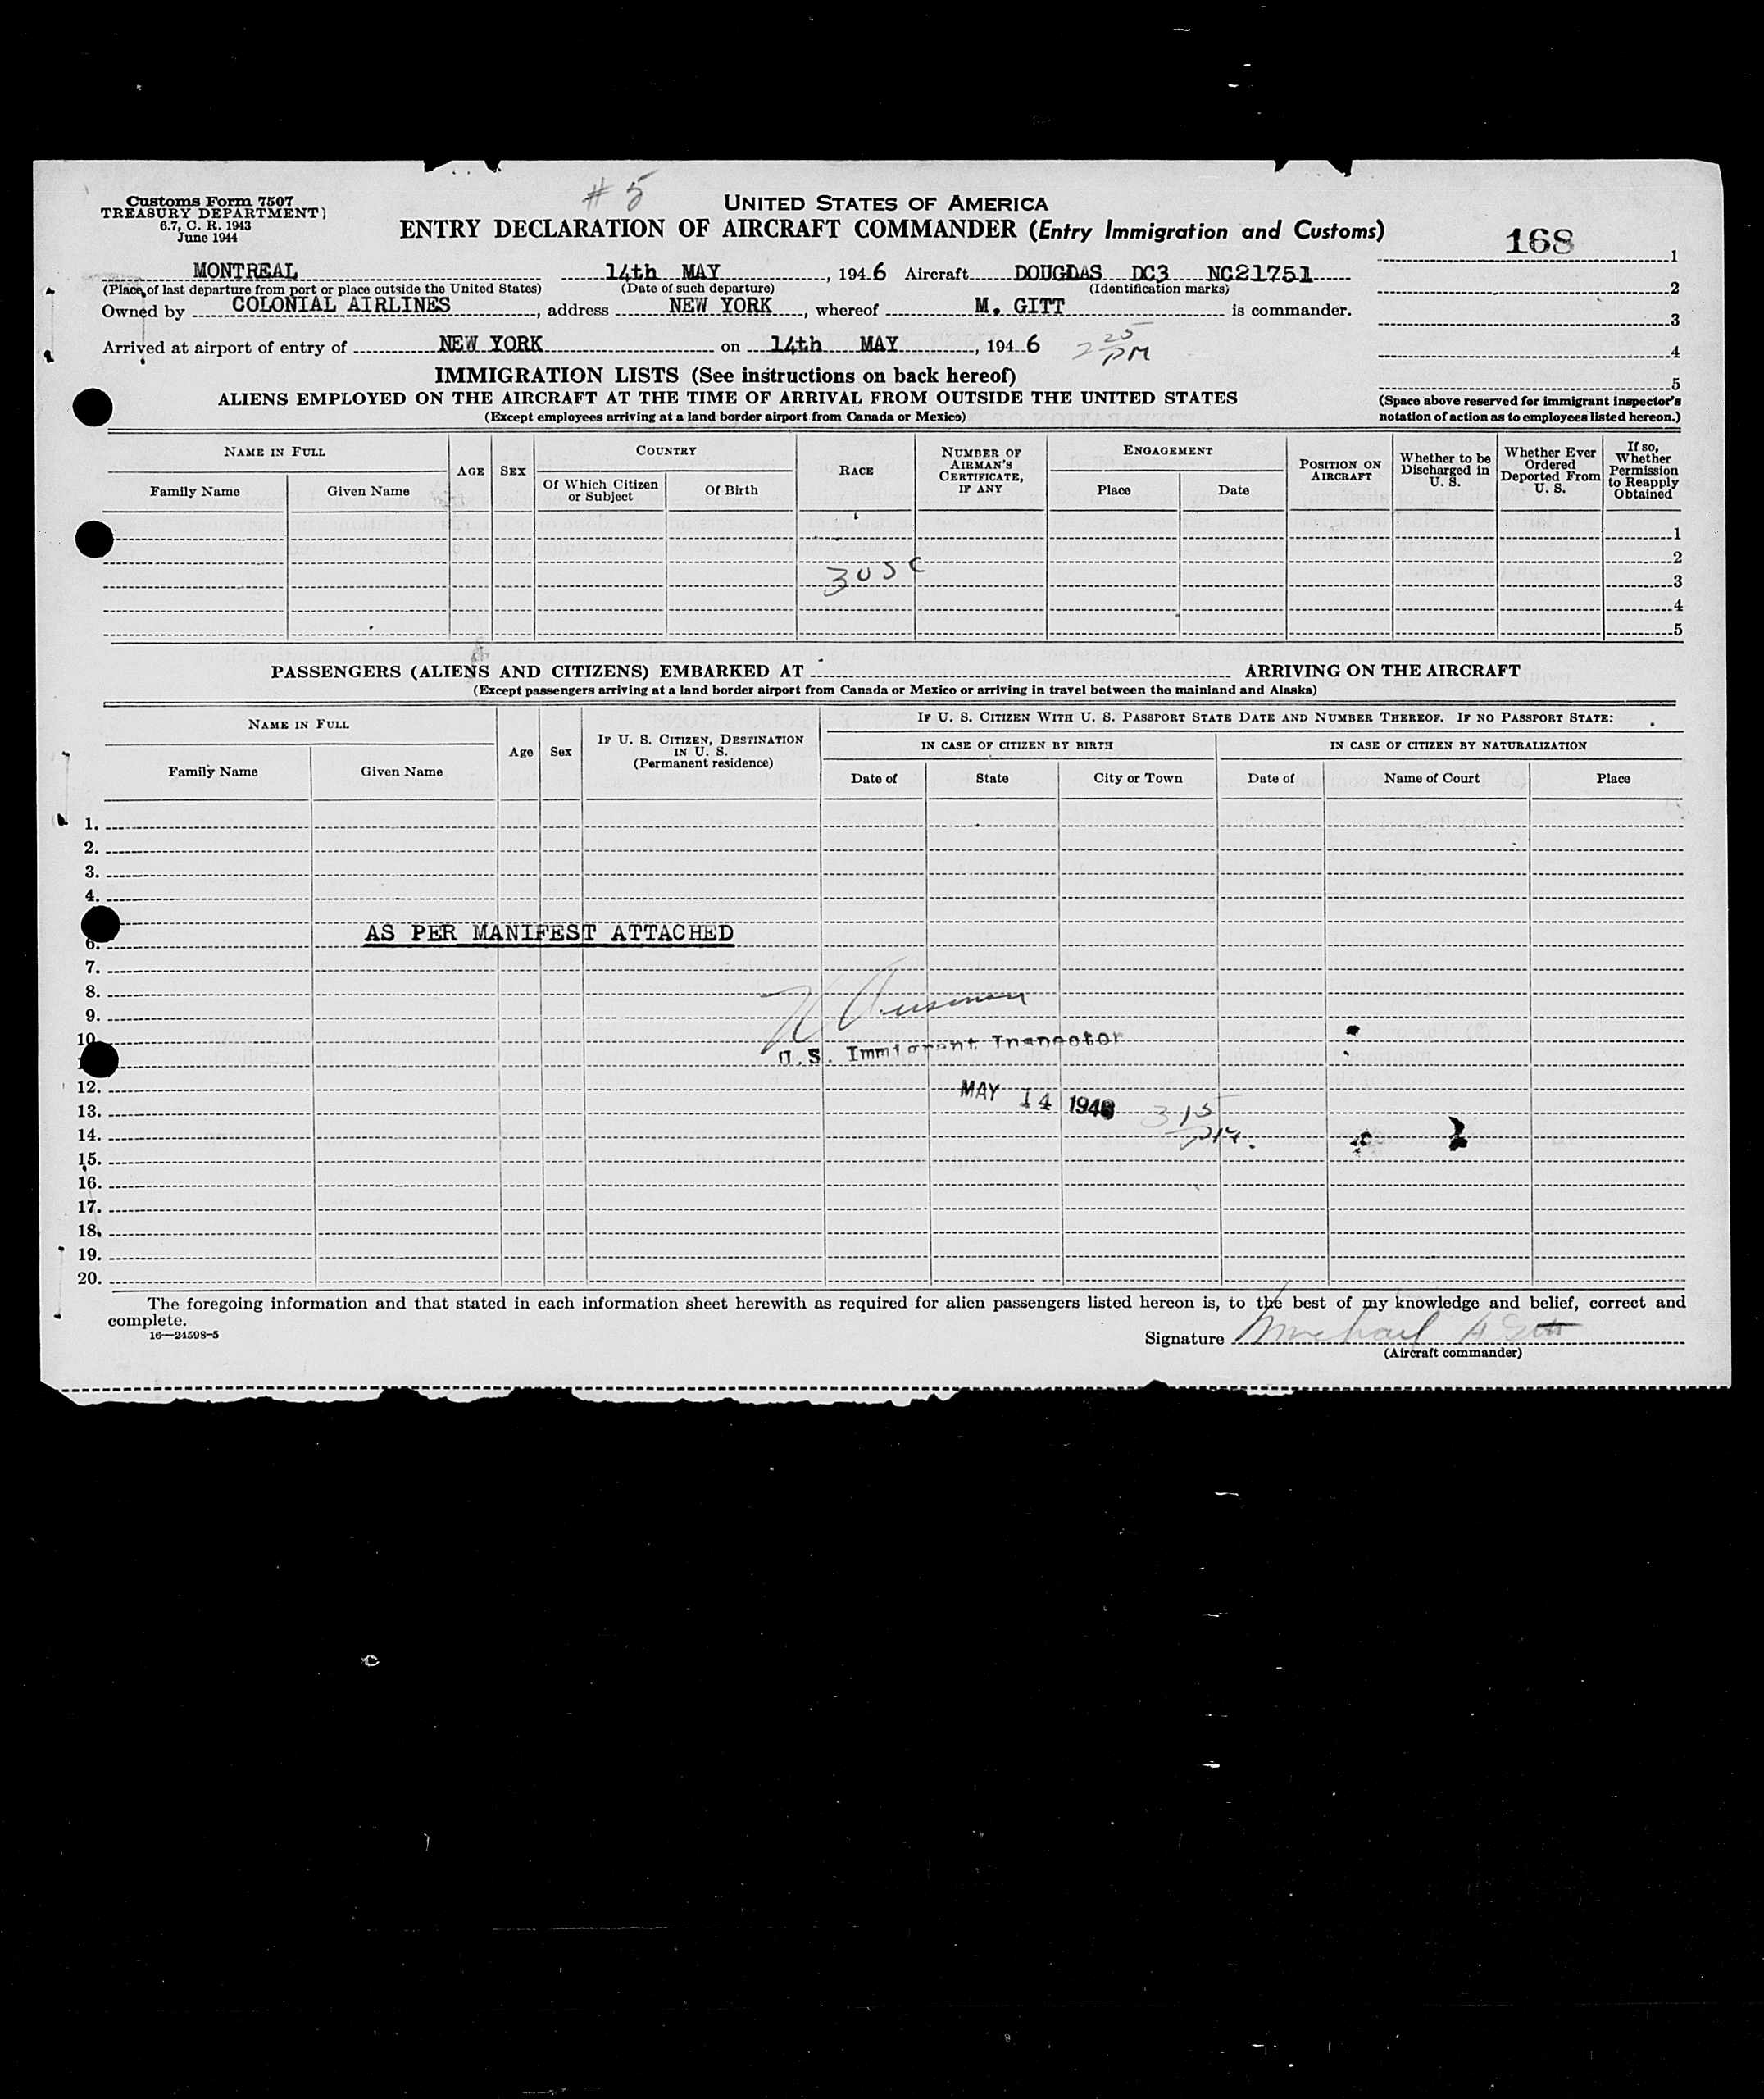 # 5
Customs Form 7507
TREASURY DEPARTMENT
6.7, C. R. 1943
June 1944
UNITED STATES OF AMERICA
ENTRY DECLARATION OF AIRCRAFT COMMANDER (Entry Immigration and Customs)
168
MONTREAL 14th MAY, 1946 Aircraft DOUGLAS DC3 NC21751
(Place of last departure from port or place outside the United States) (Date of such departure) (Identification marks)
Owned by COLONIAL AIRLINES, address NEW YORK, whereof M. GITT is commander.
Arrived at airport of entry of NEW YORK on 14th MAY, 1946 2 25 PM
1
2
3
4
5
(Space above reserved for immigrant inspector's
notation of action as to employees listed hereon.)
IMMIGRATION LISTS (See instructions on back hereof)
ALIENS EMPLOYED ON THE AIRCRAFT AT THE TIME OF ARRIVAL FROM OUTSIDE THE UNITED STATES
(Except employees arriving at a land border airport from Canada or Mexico)
NAME IN FULL
Family Name
Given Name
AGE
SEX
COUNTRY
Of Which Citizen or Subject
Of Birth
RACE
NUMBER OF AIRMAN'S CERTIFICATE, IF ANY
ENGAGEMENT
Place
Date
POSITION ON AIRCRAFT
Whether to be Discharged in U. S.
Whether Ever Ordered Deported From U. S.
If so, Whether Permission to Reapply Obtained
1
2
3 USC
3
4
5
PASSENGERS (ALIENS AND CITIZENS) EMBARKED AT ARRIVING ON THE AIRCRAFT
(Except passengers arriving at a land border airport from Canada or Mexico or arriving in travel between the mainland and Alaska)
NAME IN FULL
Family Name
Given Name
Age
Sex
IF U. S. CITIZEN, DESTINATION IN U. S. (Permanent residence)
IF U. S. CITIZEN WITH U. S. PASSPORT STATE DATE AND NUMBER THEREOF. IF NO PASSPORT STATE:
IN CASE OF CITIZEN BY BIRTH
Date of
State
City or Town
IN CASE OF CITIZEN BY NATURALIZATION
Date of
Name of Court
Place
1.
2.
3.
4.
AS PER MANIFEST ATTACHED
6.
7.
8.
9.
10
U.S. Immigrant Inspector
12.
MAY 14 1946
13.
3 15 PM.
14.
15.
16.
17.
18.
19.
20.
The foregoing information and that stated in each information sheet herewith as required for alien passengers listed hereon is, to the best of my knowledge and belief, correct and
complete.
16—24598-5
Signature Michael A Gitt
(Aircraft commander)